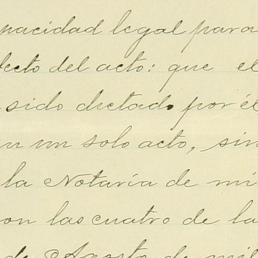 pacidad legal para
fecto del acto: que el
sido dictado por él
en un solo acto, sin
la Notaría de mi
son las cuatro de la
de Agosto de mil